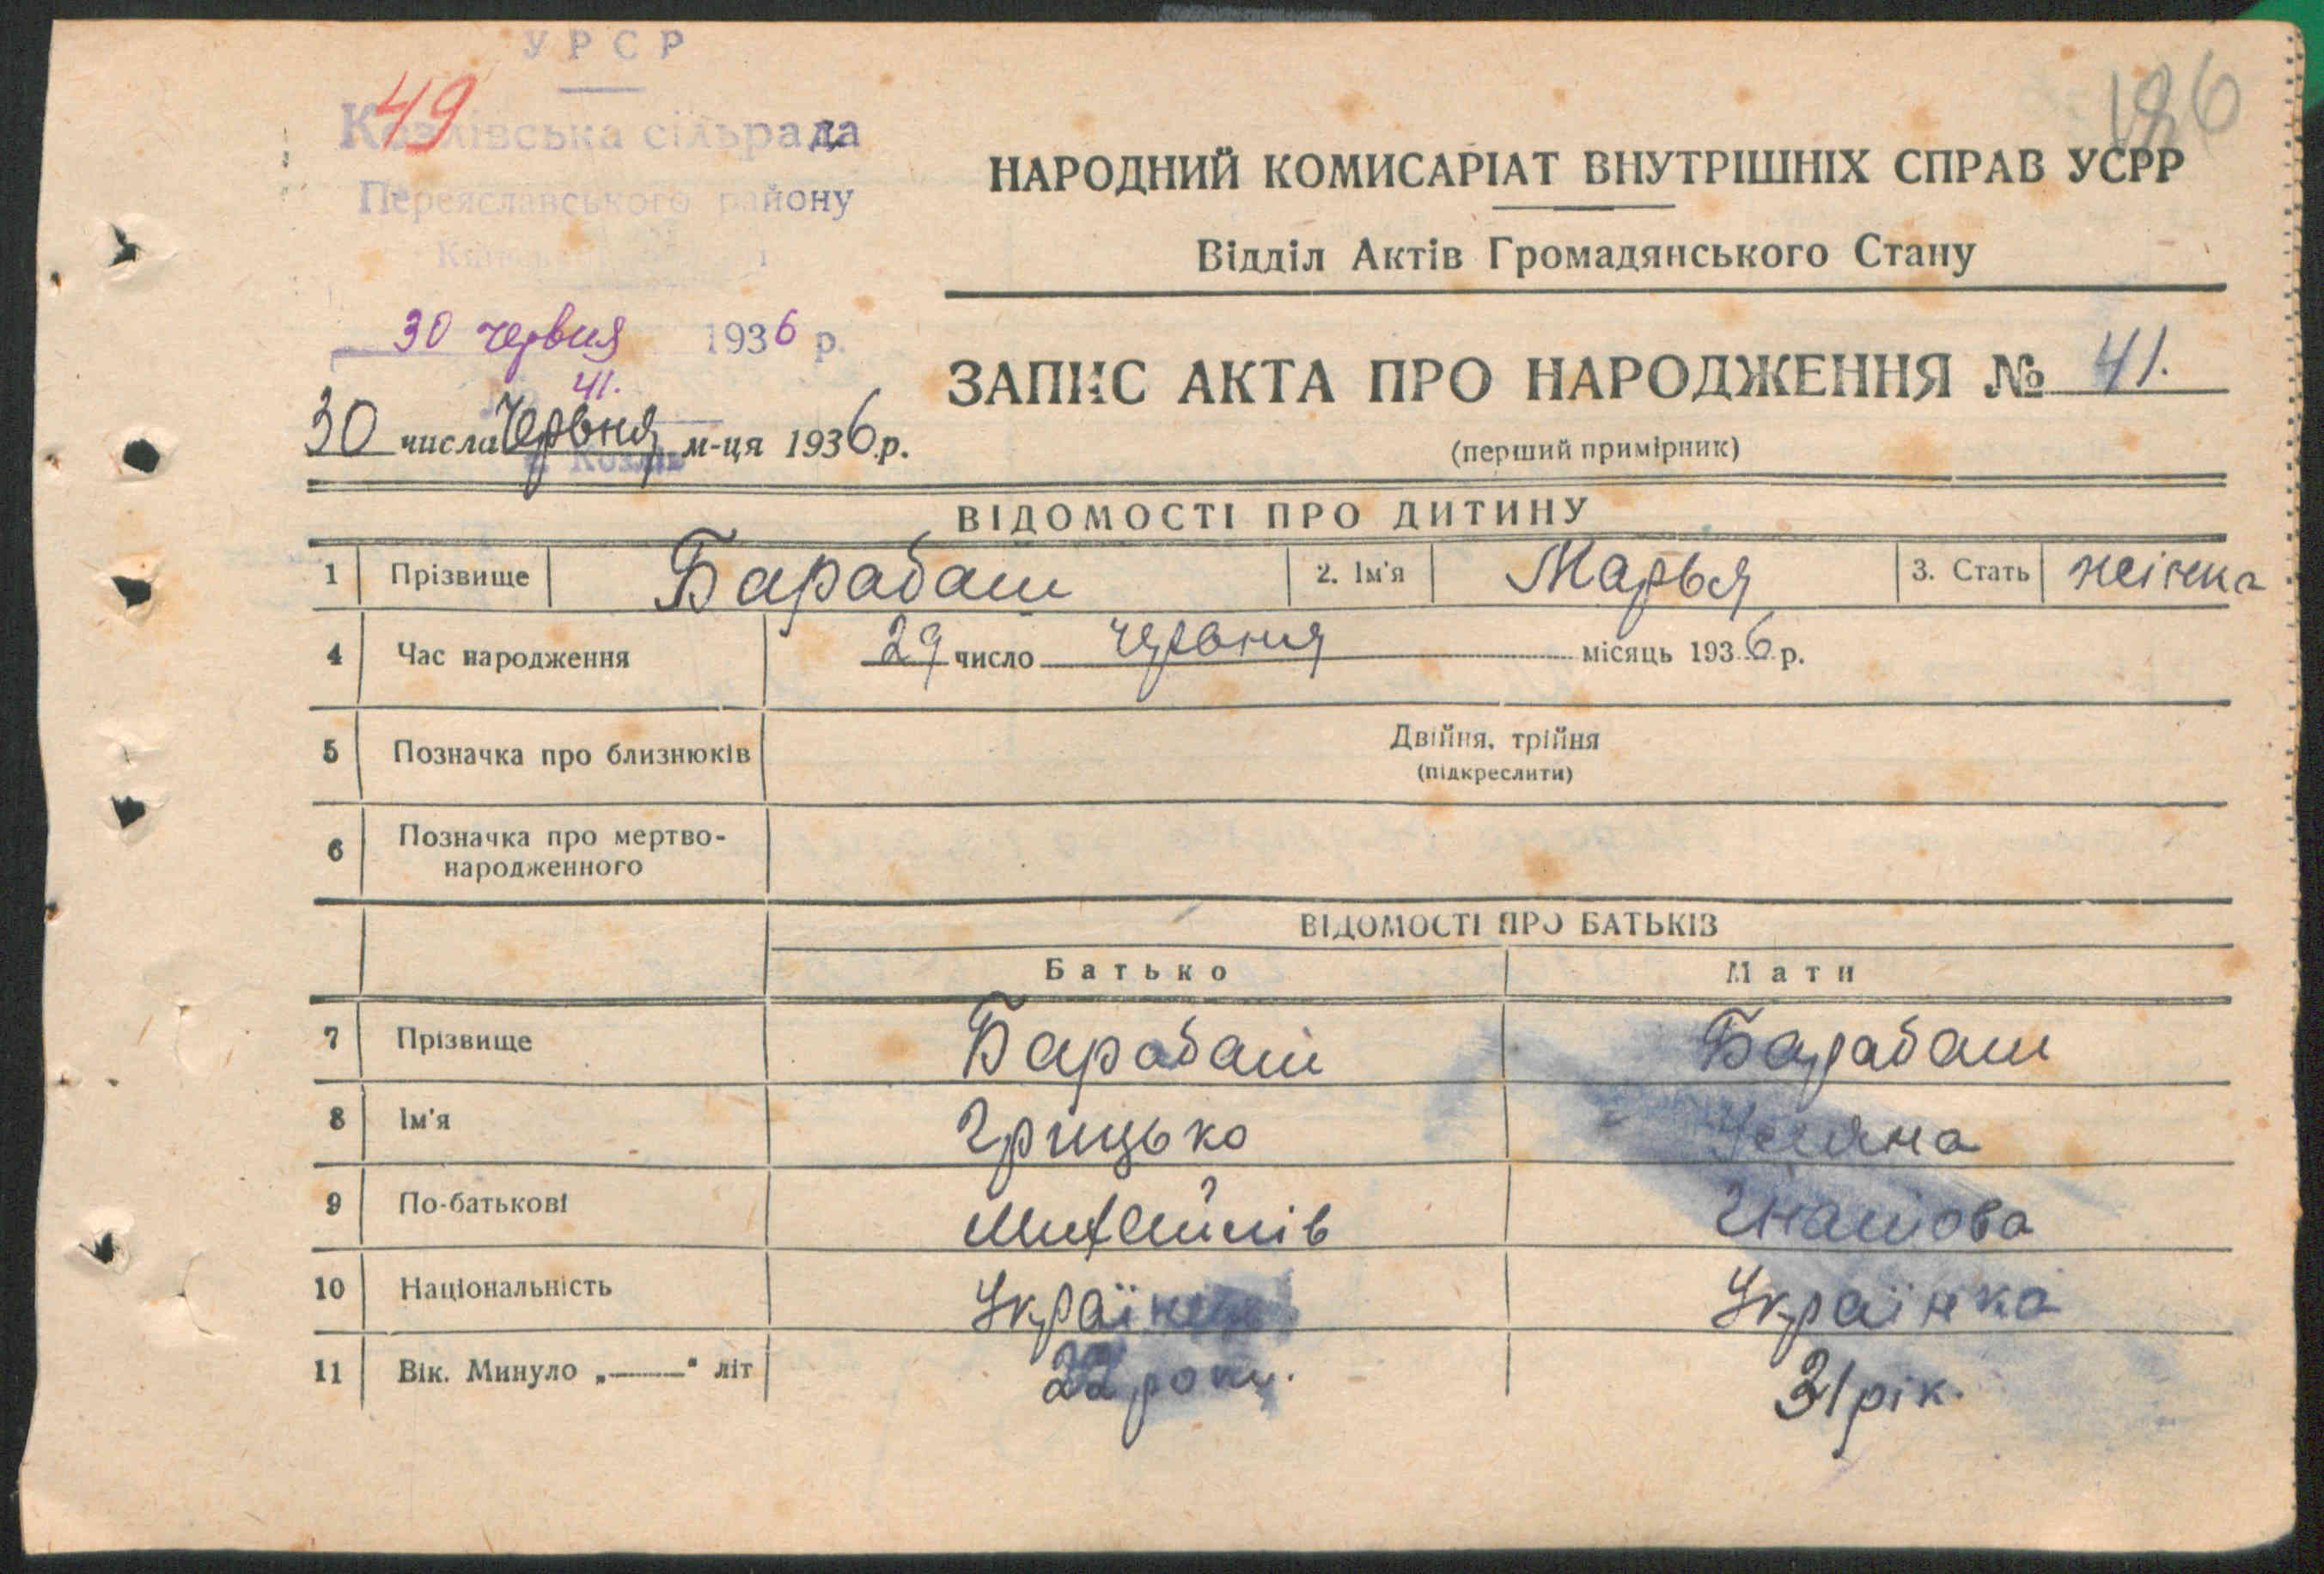 УРСР
49
Козлівська сільрада
Переяславського району
186
НАРОДНИЙ КОМИСАРІАТ ВНУТРІШНІХ СПРАВ УСРР
Відділ Актів Громадянського Стану
30 червня 1936 р.
41.
30 числа Червня м-ця 1936 р.
с. Козлів
ЗАПИС АКТА ПРО НАРОДЖЕННЯ № 41.
(перший примірник)
ВІДОМОСТІ ПРО ДИТИНУ
1 Прізвище Барабаш 2. Ім'я Марья 3. Стать жіноча
4 Час народження 29 число червня місяць 1936 р.
5 Позначка про близнюків Двійня, трійня
(підкреслити)
6 Позначка про мертво-
народженного
ВІДОМОСТІ ПРО БАТЬКІВ
Батько Мати
7 Прізвище Барабаш Барабаш
8 Ім'я Грицько Уляна
9 По-батькові Михайлів Гнатова
10 Національність Українець Українка
11 Вік. Минуло „——" літ 22 роки. 21 рік.